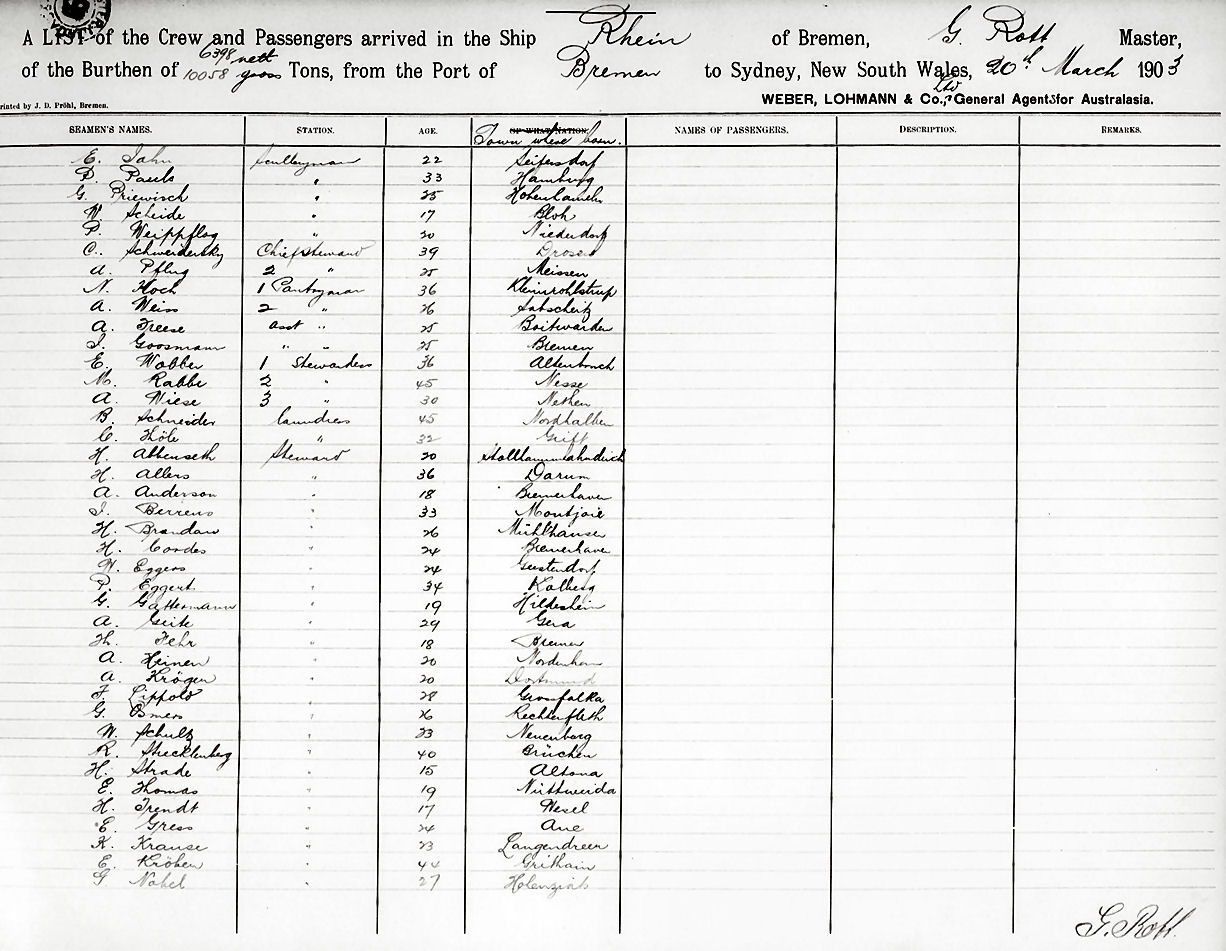 A LIST of the Crew and Passengers arrived in the Ship Rhein of Bremen, G. Rott Master,
of the Burthen of 6398 nett 10058 gross Tons, from the Port of Bremen to Sydney, New South Wales, 20th March 1903
Printed by J. D. Pröhl, Bremen.
WEBER, LOHMANN & Co., Ltd General Agents for Australasia.
SEAMEN'S NAMES. STATION. AGE. OF WHAT NATION. Town where born. NAMES OF PASSENGERS. DESCRIPTION. REMARKS.
E. Jahn Sculleryman 22 Seifersdorf
P. Pauls " 33 Hamburg
G. Priewisch " 25 Hohenhameln
W. Scheide " 17 Bloh
P. Weippflog " 20 Niederdorf
C. Schweidersky Chief steward 39 Drosen
A. Pflug 2 " 25 Meissen
N. Hoch 1 Pantryman 36
A. Weiss 2 " 26
A. Freese asst " 25 Boitwarden
J. Goosmann " " 25 Bremen
E. Wobber 1 Stewardess 36 Altenbruch
M. Rabbe 2 " 45 Nesse
A. Wiese 3 " 30 Nethen
B. Schneider laundress 45 Nordhalben
C. Höle " 32 Grift
H. Abbenseth Steward 20 Stollhammahndeich
H. Allers " 36 Darum
A. Anderson " 18 Bremerhaven
J. Berrens " 33 Montjoie
H. Brandau " 26 Mühlhausen
H. Cordes " 24 Bremerhaven
W. Eggers " 24 Geestendorf
P. Eggert " 34 Kolberg
G. Gattermann " 19 Hildesheim
A. Geite " 29 Gera
H. Fehr " 18 Bremen
A. Heinen " 20 Nordenham
A. Krögen " 20 Dortmund
F. Lippold " 28 Grossfalka
G. Osmers " 26 Rechtenfleth
W. Schulz " 23 Neuenburg
R. Strecklenberg " 40 Brüchen
H. Strade " 15 Altona
E. Thomas " 19 Mittweida
H. Trendt " 17 Wesel
E. Gress " 24 Aue
K. Krause " 23 Langendreer
E. Kröber " 44 Grithain
G. Nobel " 27
G. Rott.